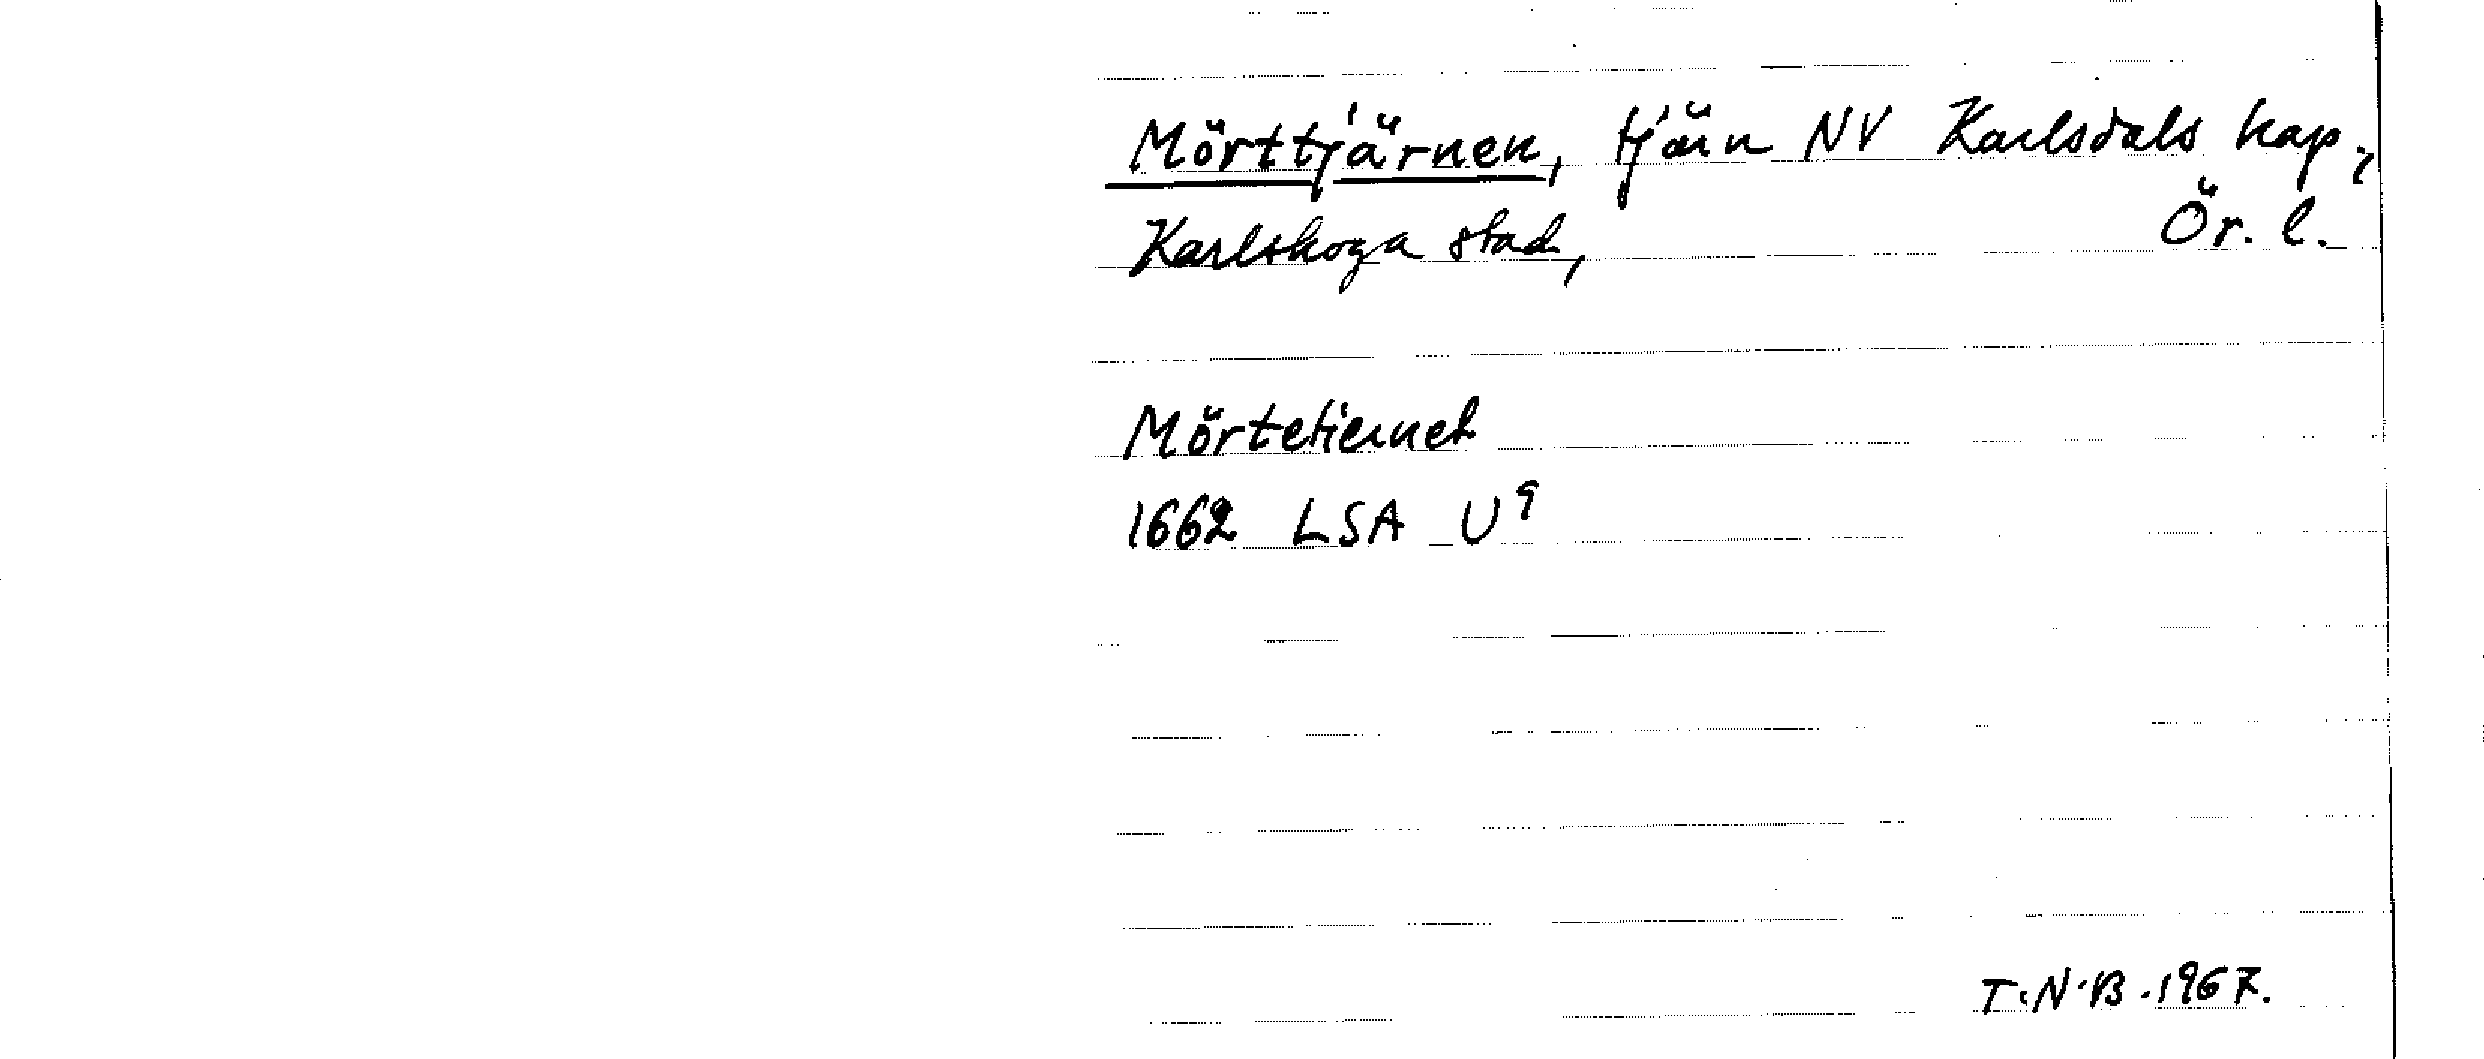 Mörttjärnen, tjärn NV Karlsdals kap,
Karlskoga stad, Ör. l.
Mörtetiernet
1662 LSA U9
T.N.B. 1967.